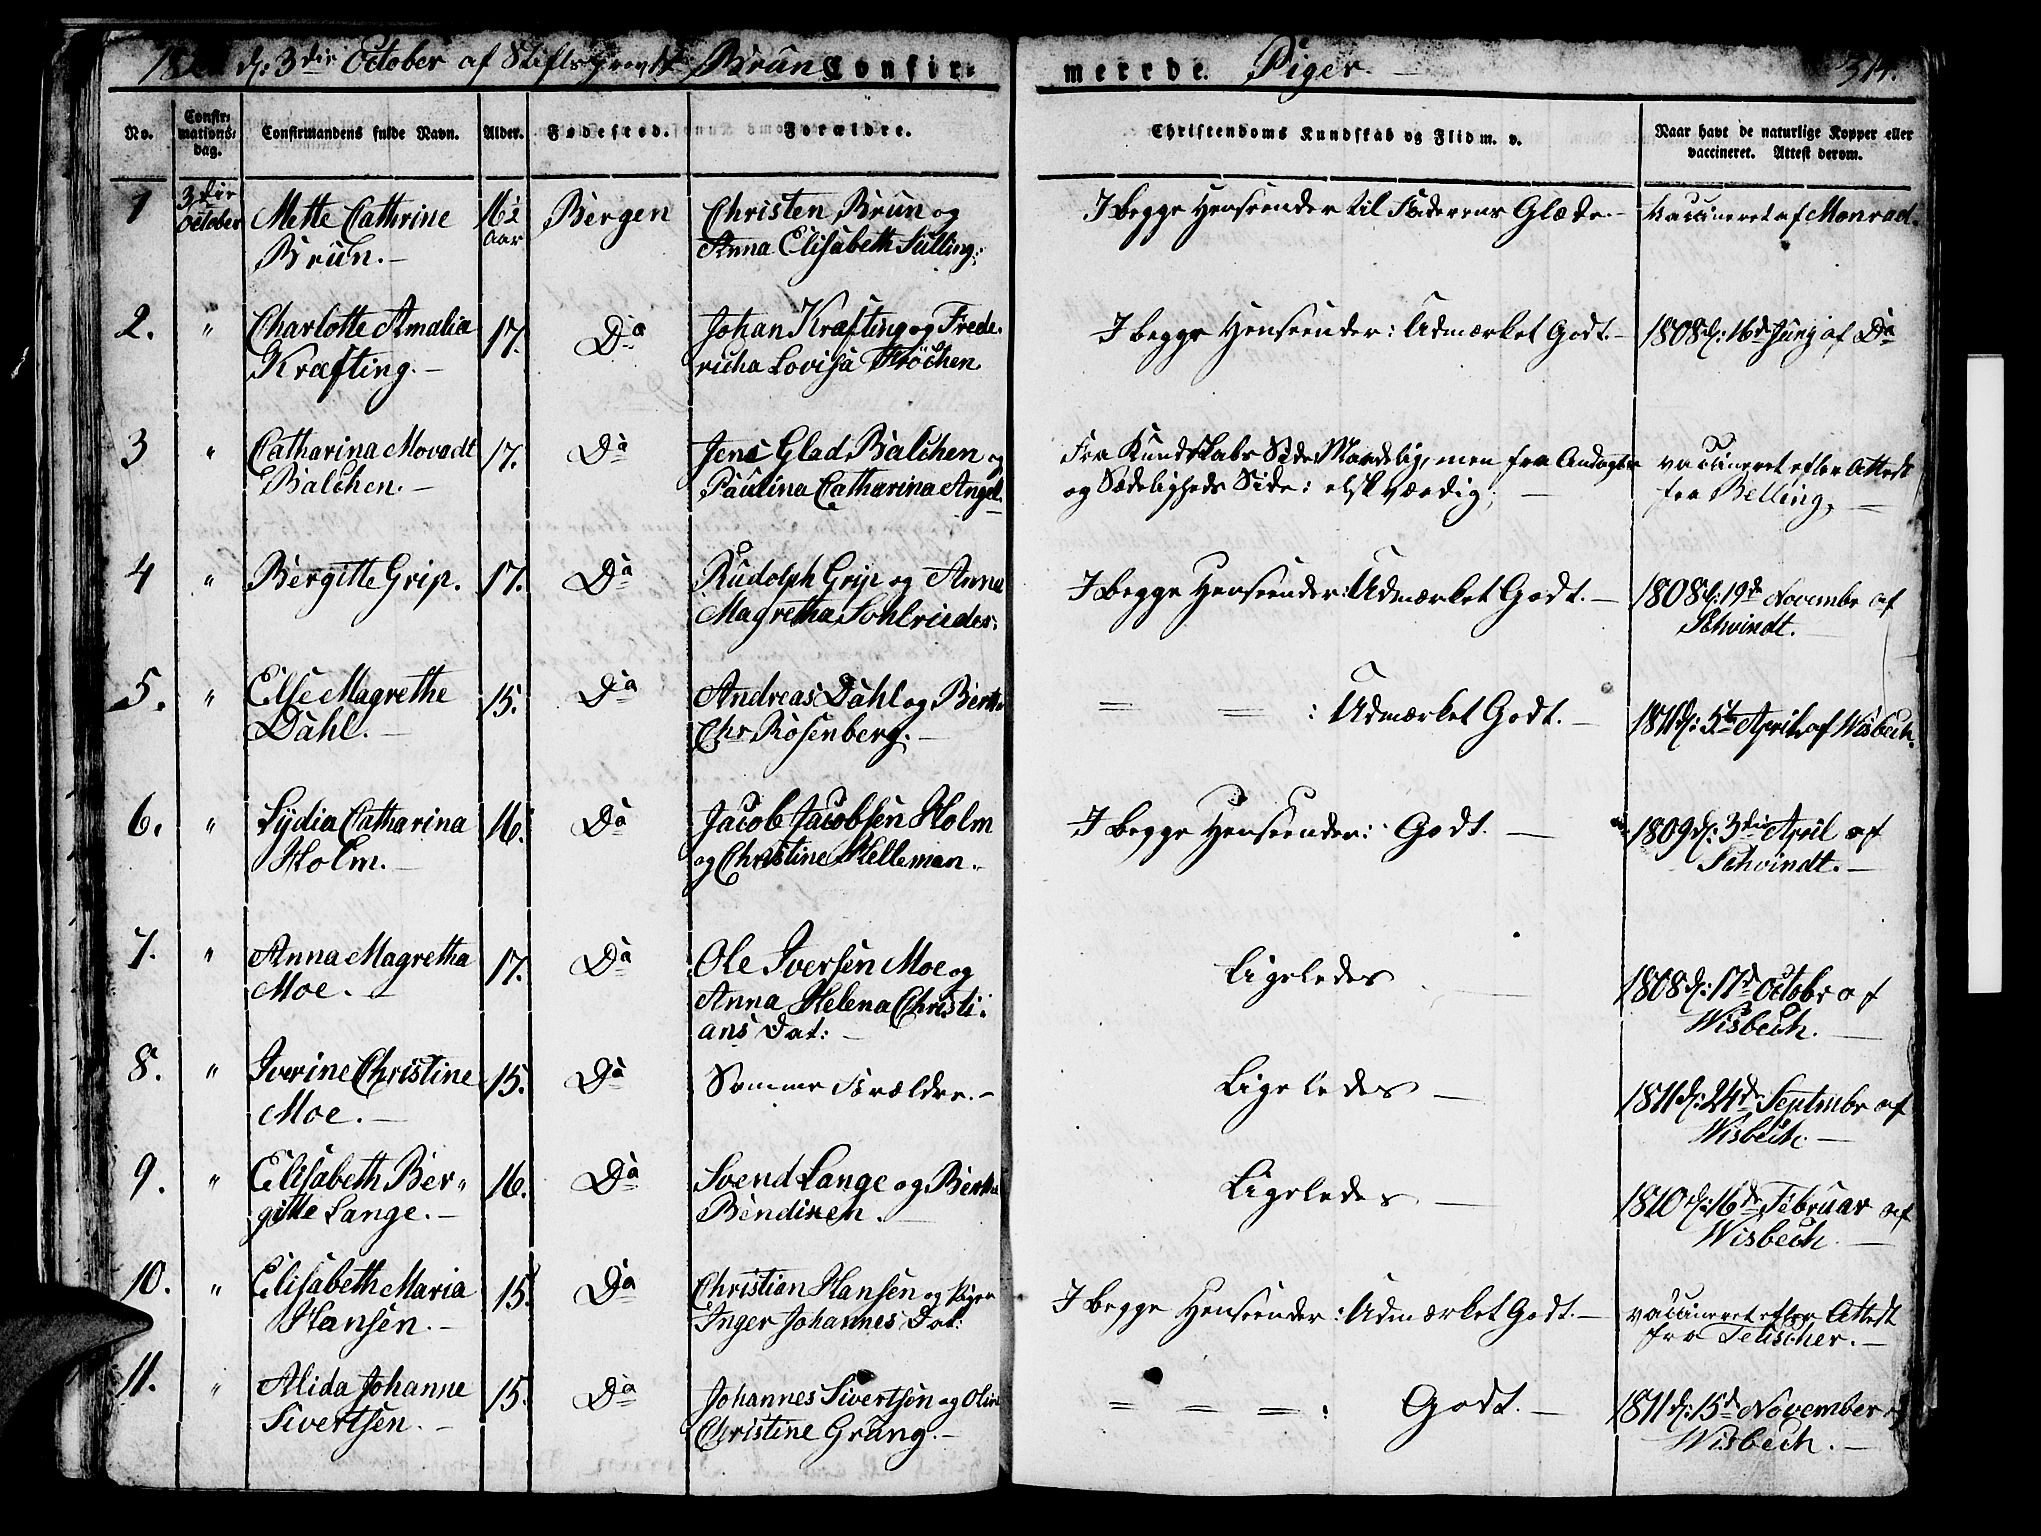 d: 3die October af Stiftsprovst Brun Confir= merede Piger. — 314.
No. Confir= mations= dag. Confirmandens fulde Navn. Alder. Fødested. Forældre. Christendoms Kundskab og Flid m. v. Naar havt de naturlige Kopper eller vaccineret. Attest derom.
1 3die October Mette Cathrine 16½ aar Bergen Christen Brun og I begge Henseender til Faderens Glæde. — Vaccineret af Monrad.
Brun. — Anna Elisabeth Sulling:
2. " Charlotte Amalia 17. Do Johan Kræfting og Frede= I begge Henseender: Udmærket Godt. — 1808 d: 16de Junj af Do
Kræfting. — richa Lovisa Fløchen.
3 " Catharina Movadt 17. Do Jens Glad Balchen og Fra Kundskabs Side Maadelig, men fra Andagts vaccineret efter Attest
Balchen. — Paulina Catharina Angel og Sædeligheds Side: elskværdig; — fra Belling, —
4 " Bergitte Grip. 17. Do Rudolph Grip og Anna I begge Henseender: Udmærket Godt. — 1808 d: 19de Novembr af
Magretha Sohlrieder: Schvindt. —
5. " Else Magrethe 15. Do Andreas Dahl og Berthe = = : Udmærket Godt. — 1811 d: 5te April af Wisbech.
Dahl. — Chr Rosenberg. —
6. " Lydia Catharina 16. Do Jacob Jacobsen Holm I begge Henseender: Godt. — 1809 d: 3die April af
Holm. — og Christine Helleman. Schvindt. —
7. " Anna Magretha 17. Do Ole Iversen Moe og Ligeledes — 1808 d: 17de Octobr af
Moe. — Anna Helena Christi= Wisbech. —
ans Dat: —
8. " Iverine Christine 15. Do Samme Forældre. — Ligeledes — 1811 d: 24de Septembr af
Moe. — Wisbech. —
9. " Elisabeth Ber" 16. Do Svend Lange og Bertha Ligeledes — 1810 d: 16de Februar af
gitte Lange. — Bendixen. — Wisbech. —
10. " Elisabeth Maria 15. Do Christian Hansen og I begge Henseender: Udmærket Godt. — vaccineret efter Attest
Hansen. — Inger Johannes Dat: fra Teuscher. —
11. " Alida Johanne 15. Do Johannes Sivertsen og Olive = = = : Godt. — 1811 d: 15de November af
Sivertsen. — Christine Grung. — Wisbech. —